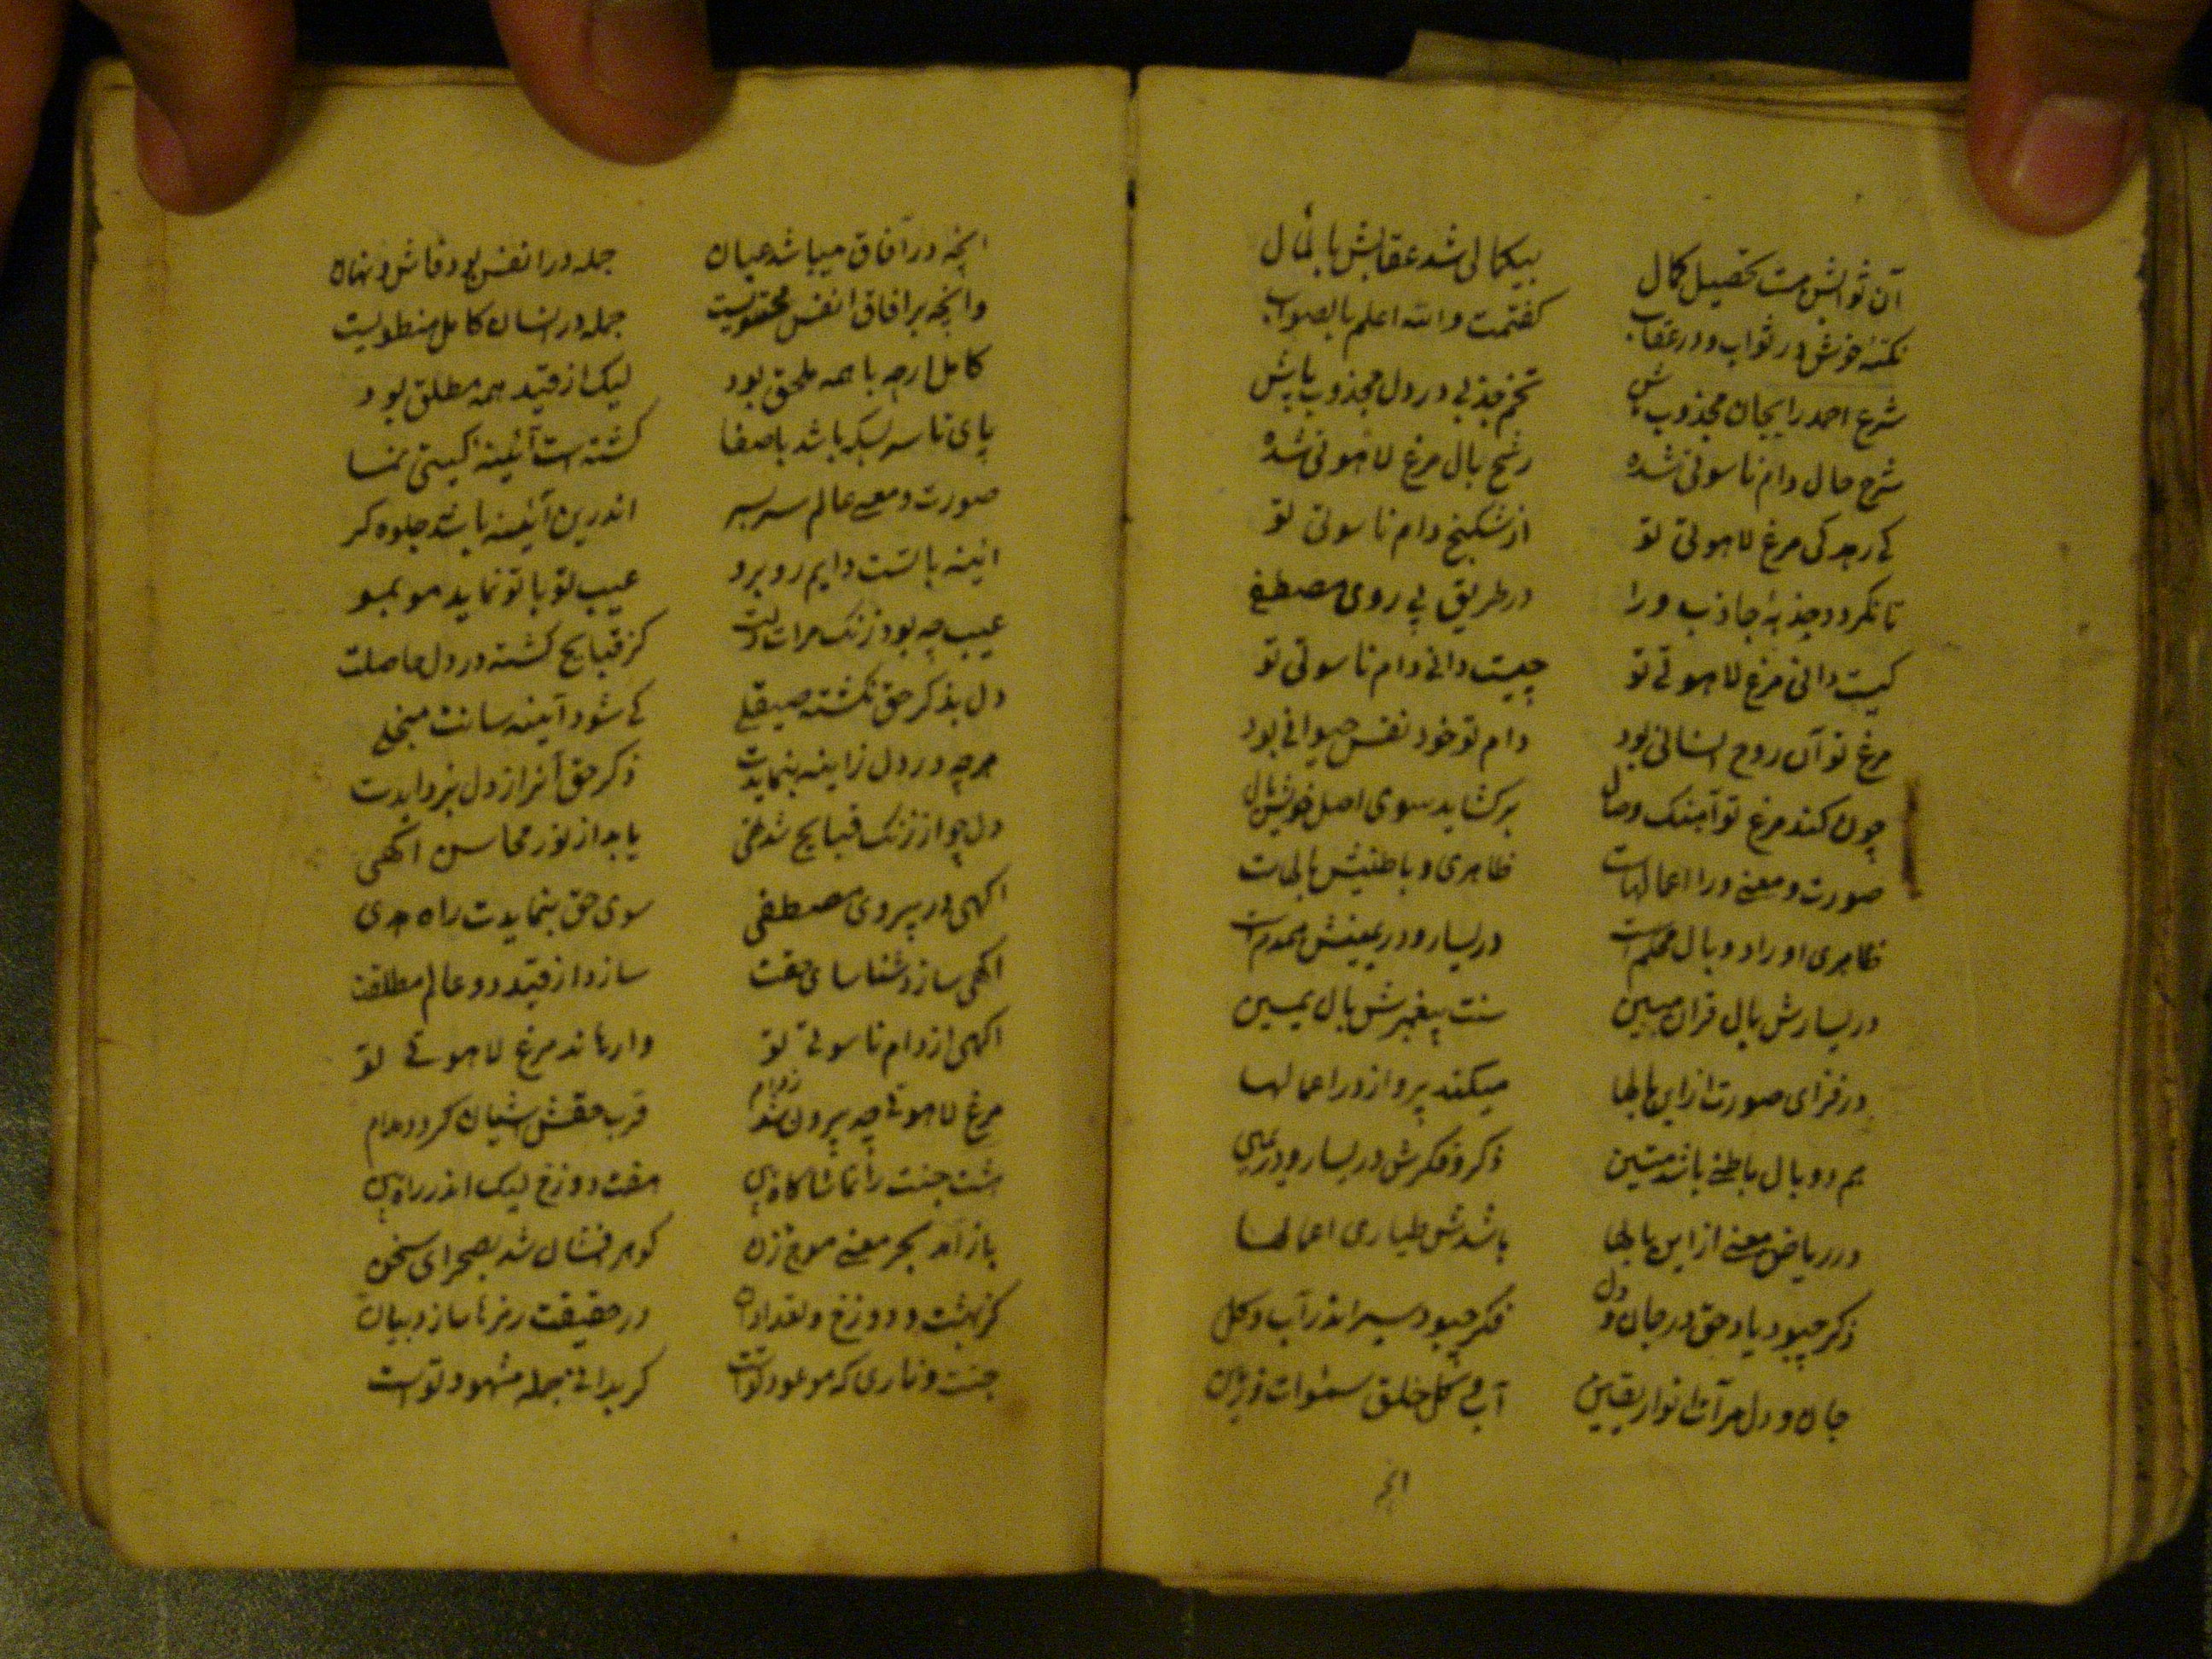 آن ثوابش هست تحصیل کمال بیکمالی شد عقابش با نمال
نکتهٔ خوش در ثواب و در عقاب گفتمت والله اعلم بالصواب
شرع احمد را بجان مجذوب باش تخم جذبی در دل مجذوب پاش
شرح حال دام ناسوتی شده رشح بال مرغ لاهوتی شده
کے رهد کی مرغ لاهوتی تو از شکنج دام ناسوتی تو
تا نگردد جذبهٔ جاذب ورا در طریق پی روی مصطفے
کیست دانی مرغ لاهوتے تو چیست دانے دام ناسوتی تو
مرغ تو آن روح انسانی بود دام تو خود نفس حیوانی بود
چون کند مرغ تو آهنگ وصال برکشاید سوی اصل خویش بال
صورت و معنے ورا اعمالهاست ظاهری و باطنیش بالهاست
ظاهری او را دو بال محکم است در یسار و در یمینش همدم است
در یسارش بال قران مبین سنت پیغمبرش بال یمین
در فزای صورت از این بالها میکند پرواز در اعمالها
هم دو بال باطنے باشد متین ذکر و فکرش در یسار و در یمین
در ریاض معنے از این بالها باشدش طیاری اعمالها
ذکر چبود یاد حق در جان و دل فکر چبود سیر اندر آب و گل
جان و دل مرآت انوار یقین آب و گل خلق سموات و زمین
انچه
انچه در آفاق میباشد عیان جمله در انفس بود فاش و نهان
وانچه بر افاق انفس محتویست جمله در انسان کامل منطویست
کامل ارچه با همه ملحق بود لیک از قید همه مطلق بود
پای تا سر بسکه باشد با صفا گشته است آئینهٔ گیتی نما
صورت و معنے عالم سر بسر اندرین آئینه باشد جلوه گر
ائینه با تست دایم روبرو عیب تو با تو نماید مو بمو
عیب چه بود زنگ مرات دلت کز قبایح گشته در دل حاصلت
دل بذکر حق نگشته صیقلے کے شود آیینه سانت منجلے
هرچه در دل زاینه بنمایدت ذکر حق آنرا از دل بزدایدت
دل چو از زنگ قبایح شد تهی یابد از نور محاسن اگهی
اگهی در پیروی مصطفی سوی حق بنمایدت راه هدی
اگهی سازد شناسای حقت سازد از قید دو عالم مطلقت
اگهی از دام ناسوتے تو وارهاند مرغ لاهوتے تو
مرغ لاهوتے چه بیرون شد ز دام قرب حقش اشیان گردد مدام
هشت جنت را تماشا گاه بین هفت دوزخ لیک اندر راه بین
باز آمد بحر معنے موج زن گوهر فشان شد بصحرای سخن
کز بهشت و دوزخ و تعداد آن در حقیقت رمزها سازد بیان
جنت و ناری که موعود تو است گر بدانے جمله مشهود تو است